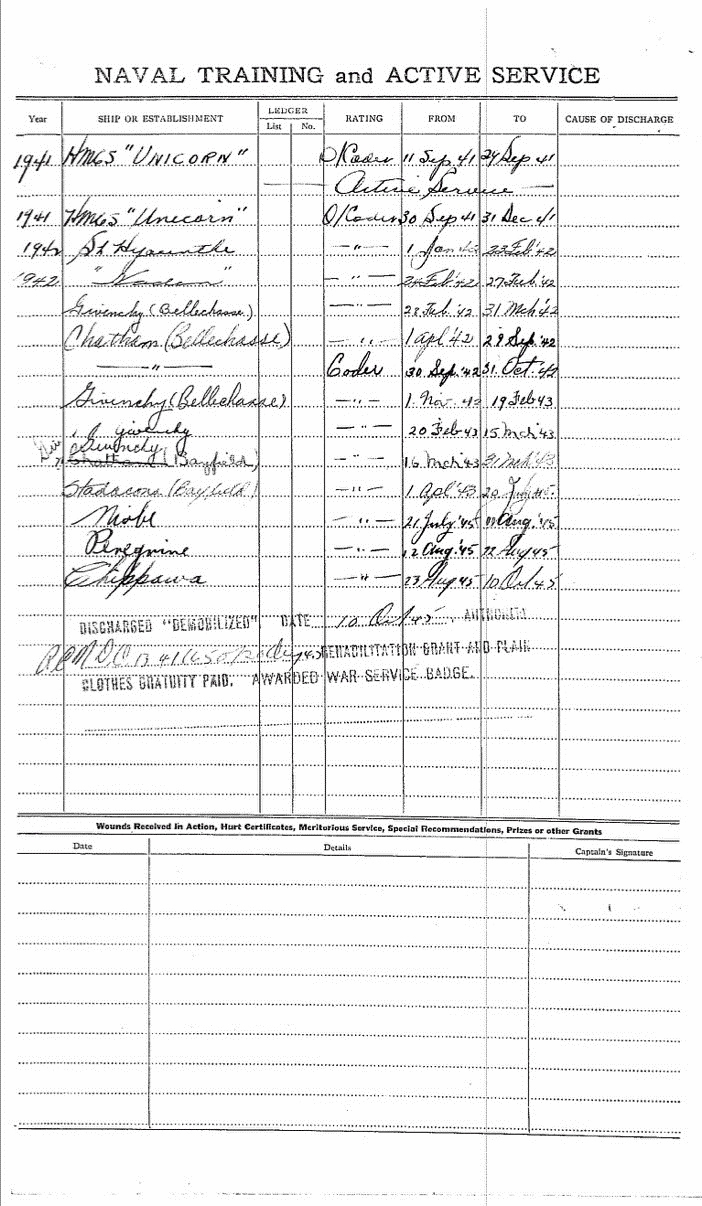 NAVAL TRAINING and ACTIVE SERVICE
LEDGER
Year SHIP OR ESTABLISHMENT List No. RATING FROM TO CAUSE OF DISCHARGE
1941 HMCS "UNICORN" O/Coder 11 Sep 41 29 Sep 41
Active Service
1941 HMCS "Unicorn" O/Coder 30 Sep 41 31 Dec 41
1942 St Hyacinthe — " — 1 Jan 42 23 Feb '42
1942 — " — 24 Feb '42 27 Feb '42
Givenchy (Bellechasse) — " — 28 Feb '42 31 Mch '42
Chatham (Bellechasse) — " — 1 Apl '42 29 Sep '42
— " — Coder 30 Sep '42 31 Oct '42
Givenchy (Bellechasse) — " — 1 Nov 42 19 Feb 43
Givenchy — " — 20 Feb 43 15 Mch '43
Givenchy
Chatham (Bayfield) — " — 16 Mch '43 31 Mch '43
Stadacona (Bayfield) — " — 1 Apl '43 20 July '45
Niobe — " — 21 July '45 11 Aug. '45
Peregrine — " — 12 Aug. '45 22 Aug 45
Chippawa — " — 23 Aug 45 10 Oct 45
DISCHARGED "DEMOBILIZED" DATE 10 Oct 45 AUTHORITY
REHABILITATION GRANT AND PLAIN
CLOTHES GRATUITY PAID. AWARDED WAR SERVICE BADGE.
Wounds Received in Action, Hurt Certificates, Meritorious Service, Special Recommendations, Prizes or other Grants
Date Details Captain's Signature